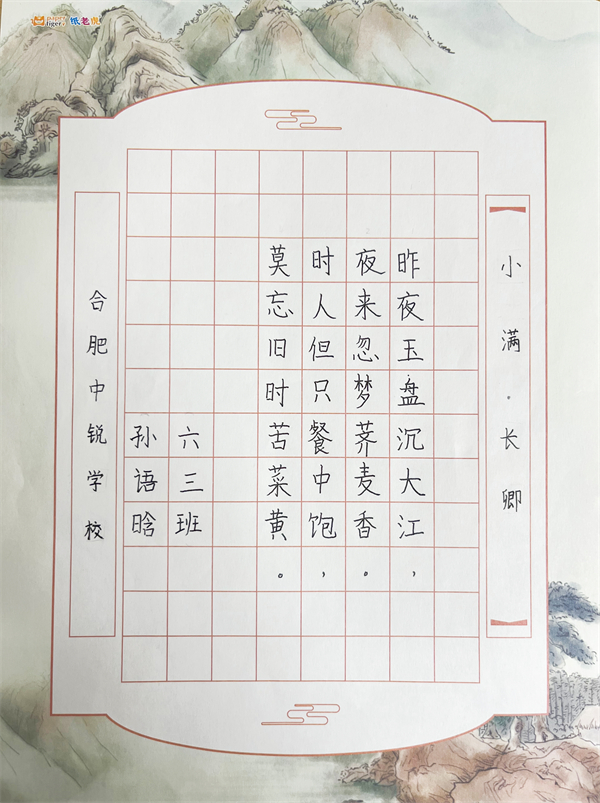 Tiger 纸老虎
小满·长卿
昨夜玉盘沉大江，
夜来忽梦荞麦香。
时人但只餐中饱，
莫忘旧时苦菜黄。
六三班
孙语晗
合肥中锐学校